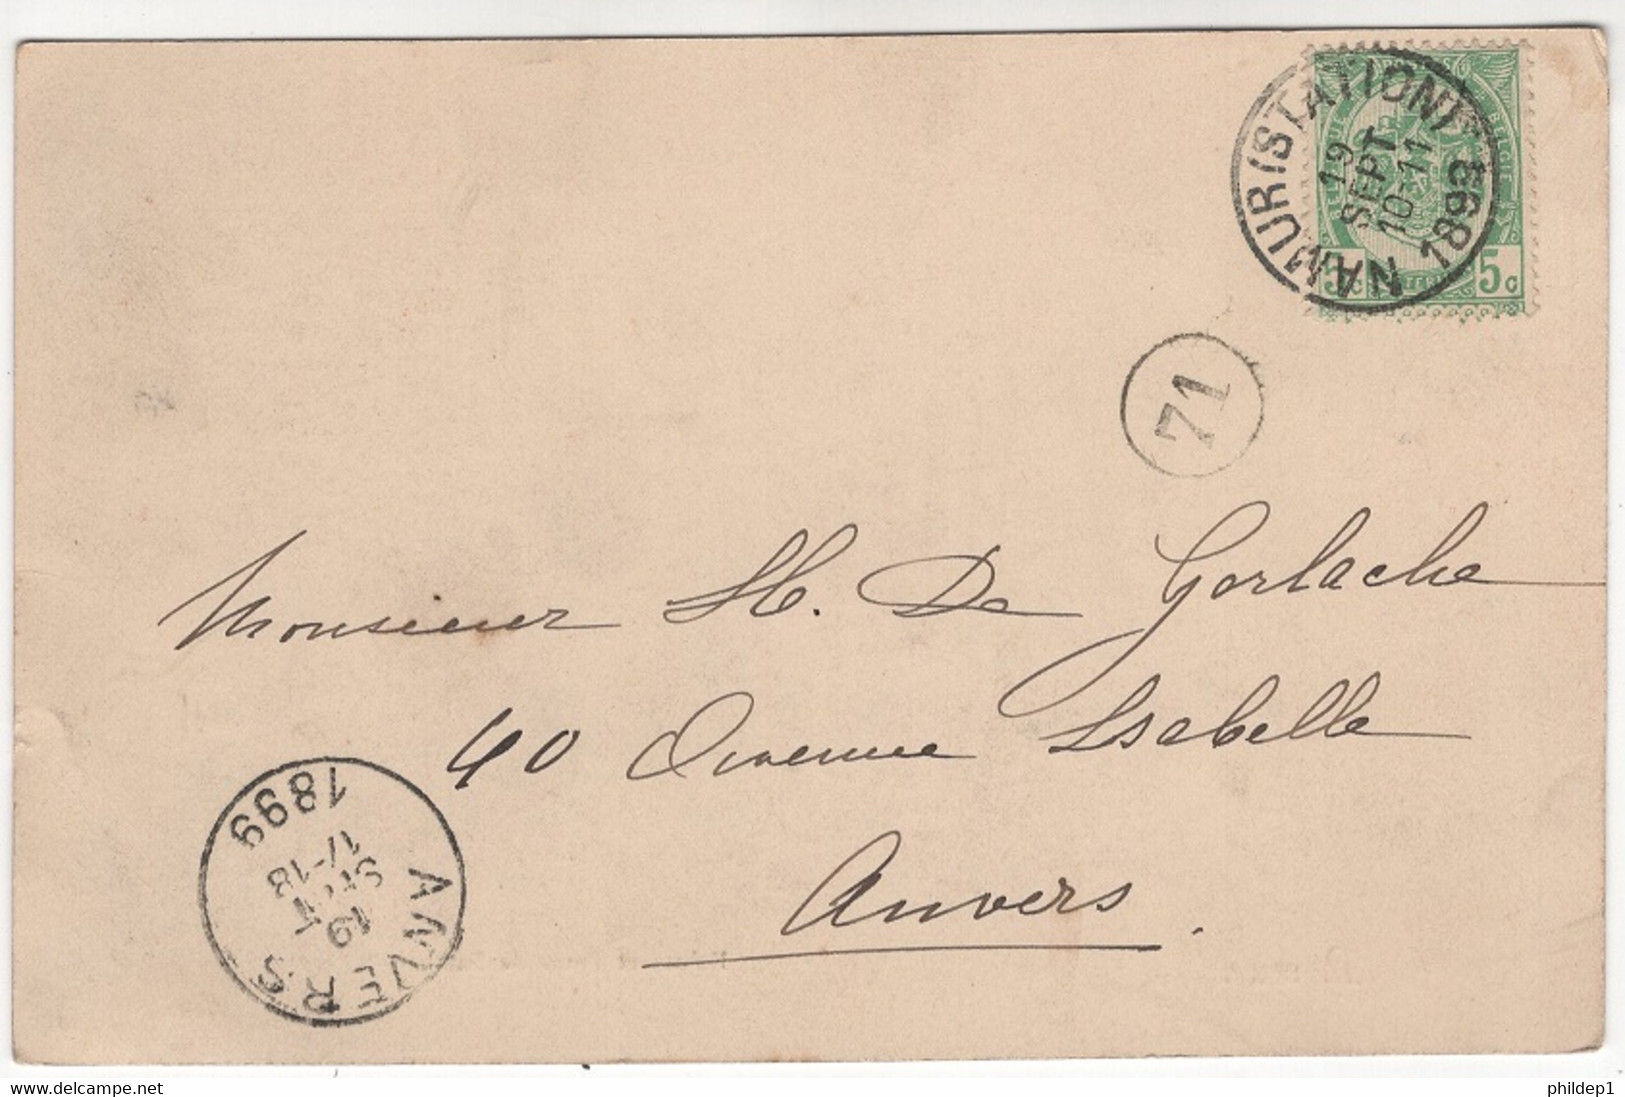 NAMUR (STATION)
19
SEPT
10-11
1899
BELGIQUE
5c 5c
71
Monsieur H. De Gerlache
40 Avenue Isabelle
Anvers.
1899
17-18
SEPT
19
ANVERS
www.delcampe.net
phildep1